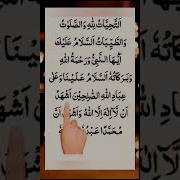 اَلتَّحِيَّاتُ لِلّٰهِ وَالصَّلَوٰتُ
وَالطَّيِّبَاتُ اَلسَّلَامُ عَلَيْكَ
اَيُّهَا النَّبِيُّ وَرَحْمَةُ اللّٰهِ
وَبَرَكَاتُهُ اَلسَّلَامُ عَلَيْنَا وَعَلٰى
عِبَادِ اللّٰهِ الصّٰلِحِيْنَ اَشْهَدُ
اَنْ لَّا اِلٰهَ اِلَّا اللّٰهُ وَاَشْهَدُ اَنَّ
مُحَمَّدًا عَبْدُهُ